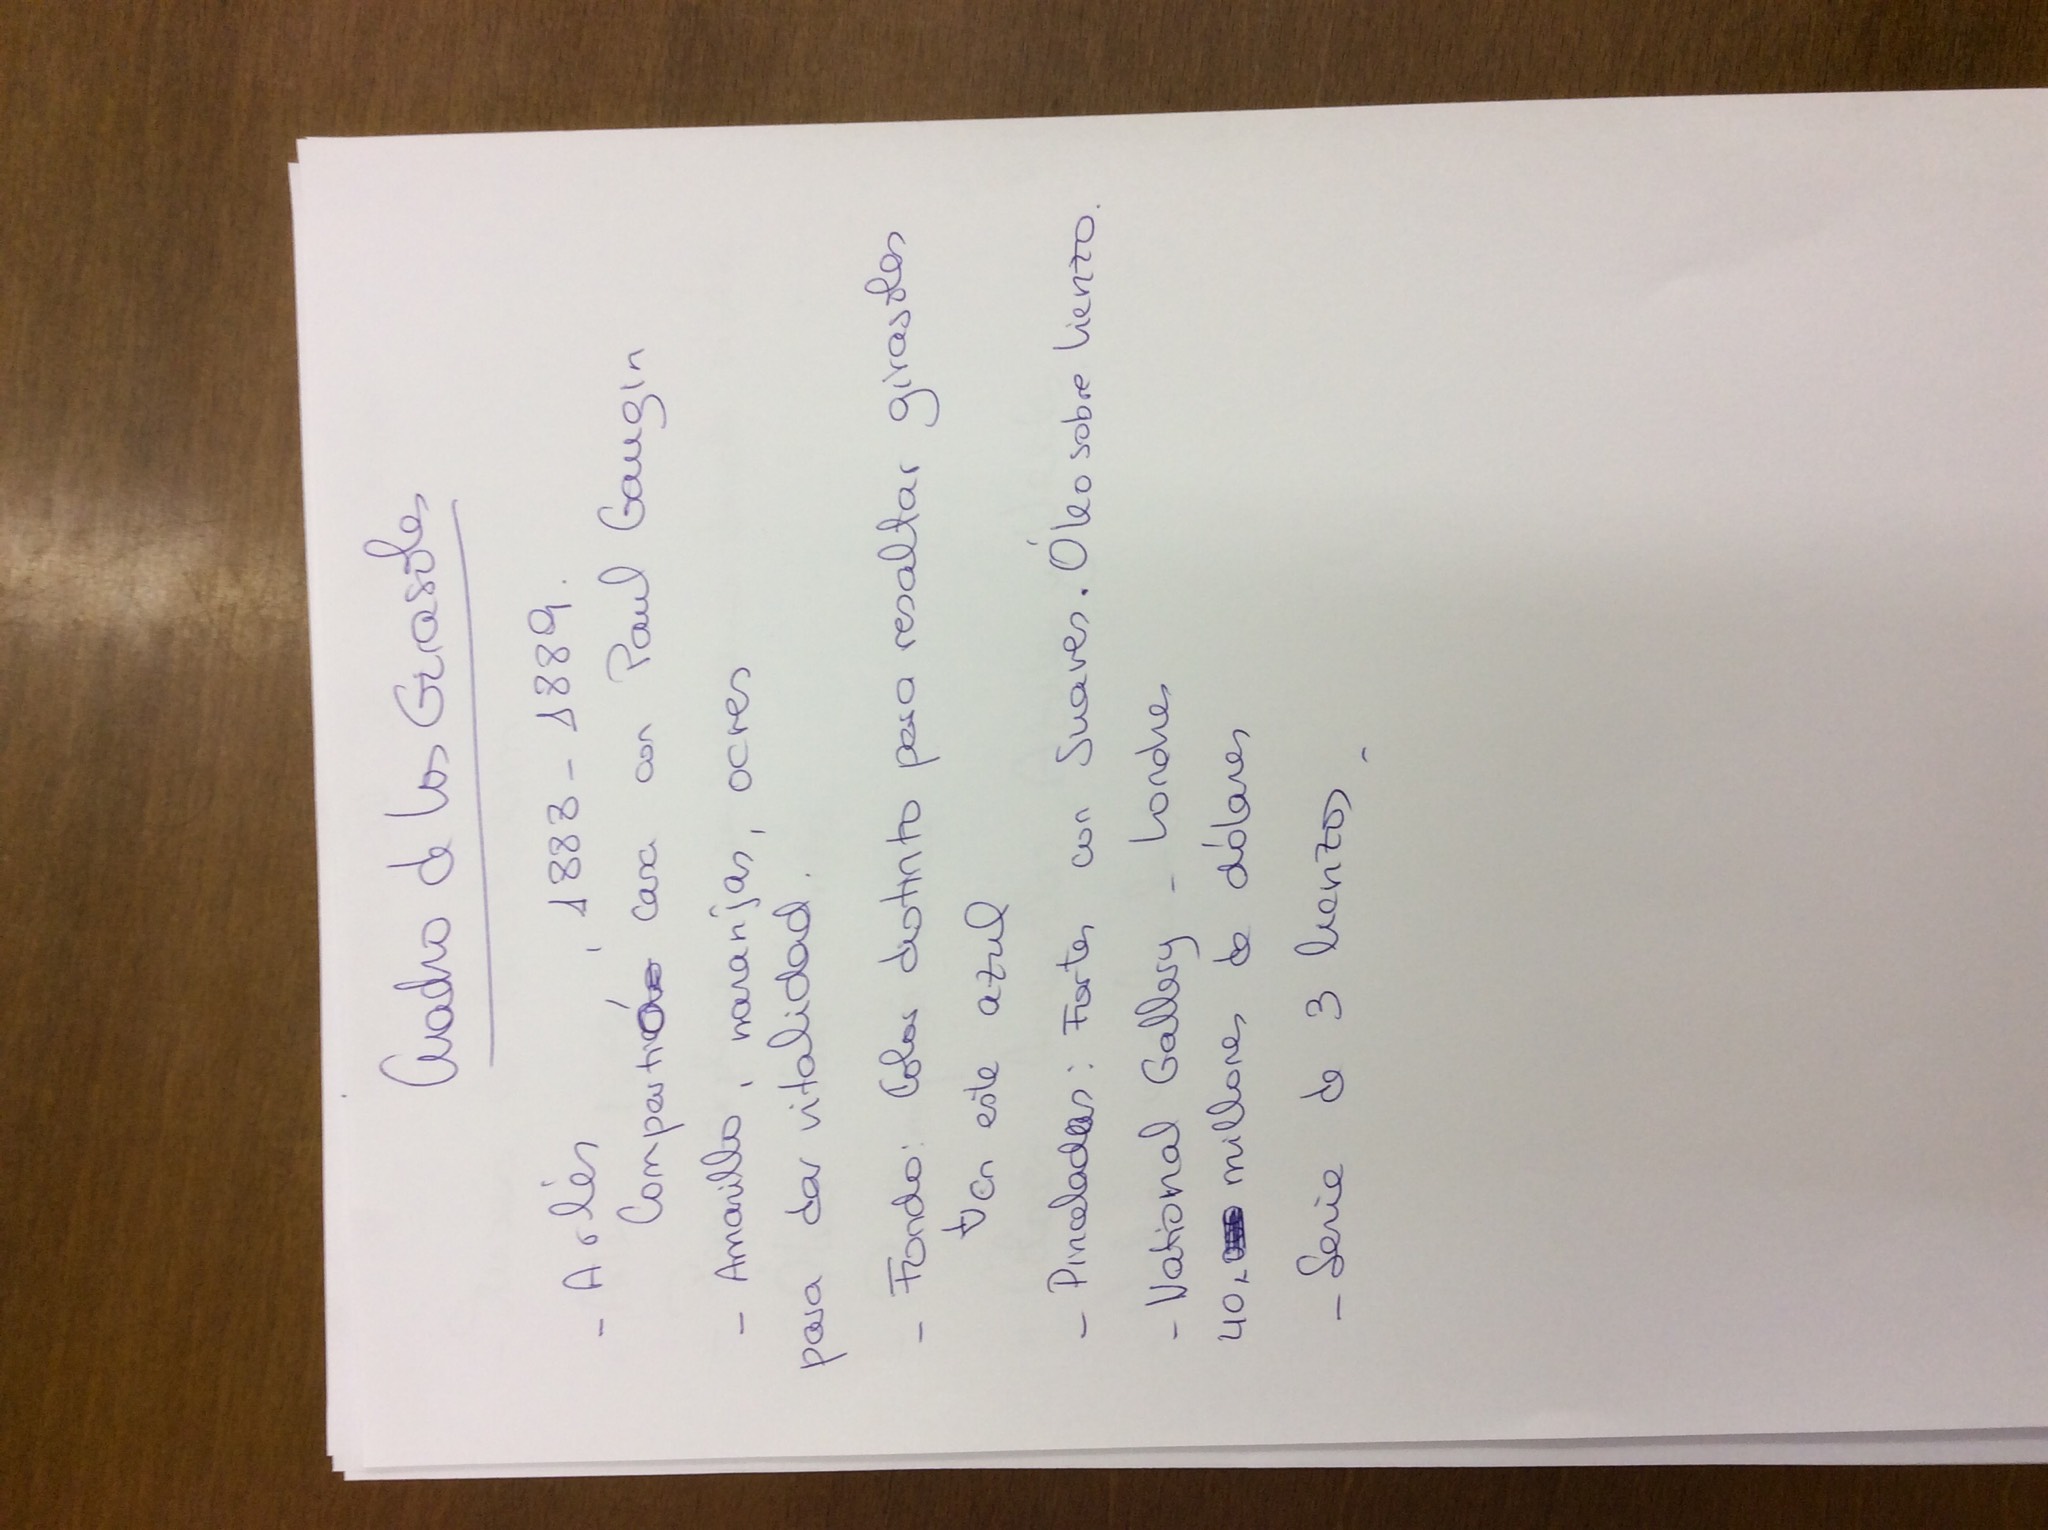 Cuadro de los Girasoles
- Arlés, 1888-1889.
Compartió casa con Paul Gaugin
- Amarillo, naranjas, ocres
para dar vitalidad.
- Fondo: Color distinto para resaltar girasoles
En este azul
- Pinceladas: Fortes con Suaves. Óleo sobre lienzo.
- National Gallery - Londres
40, millones de dólares
- Serie de 3 lienzos.